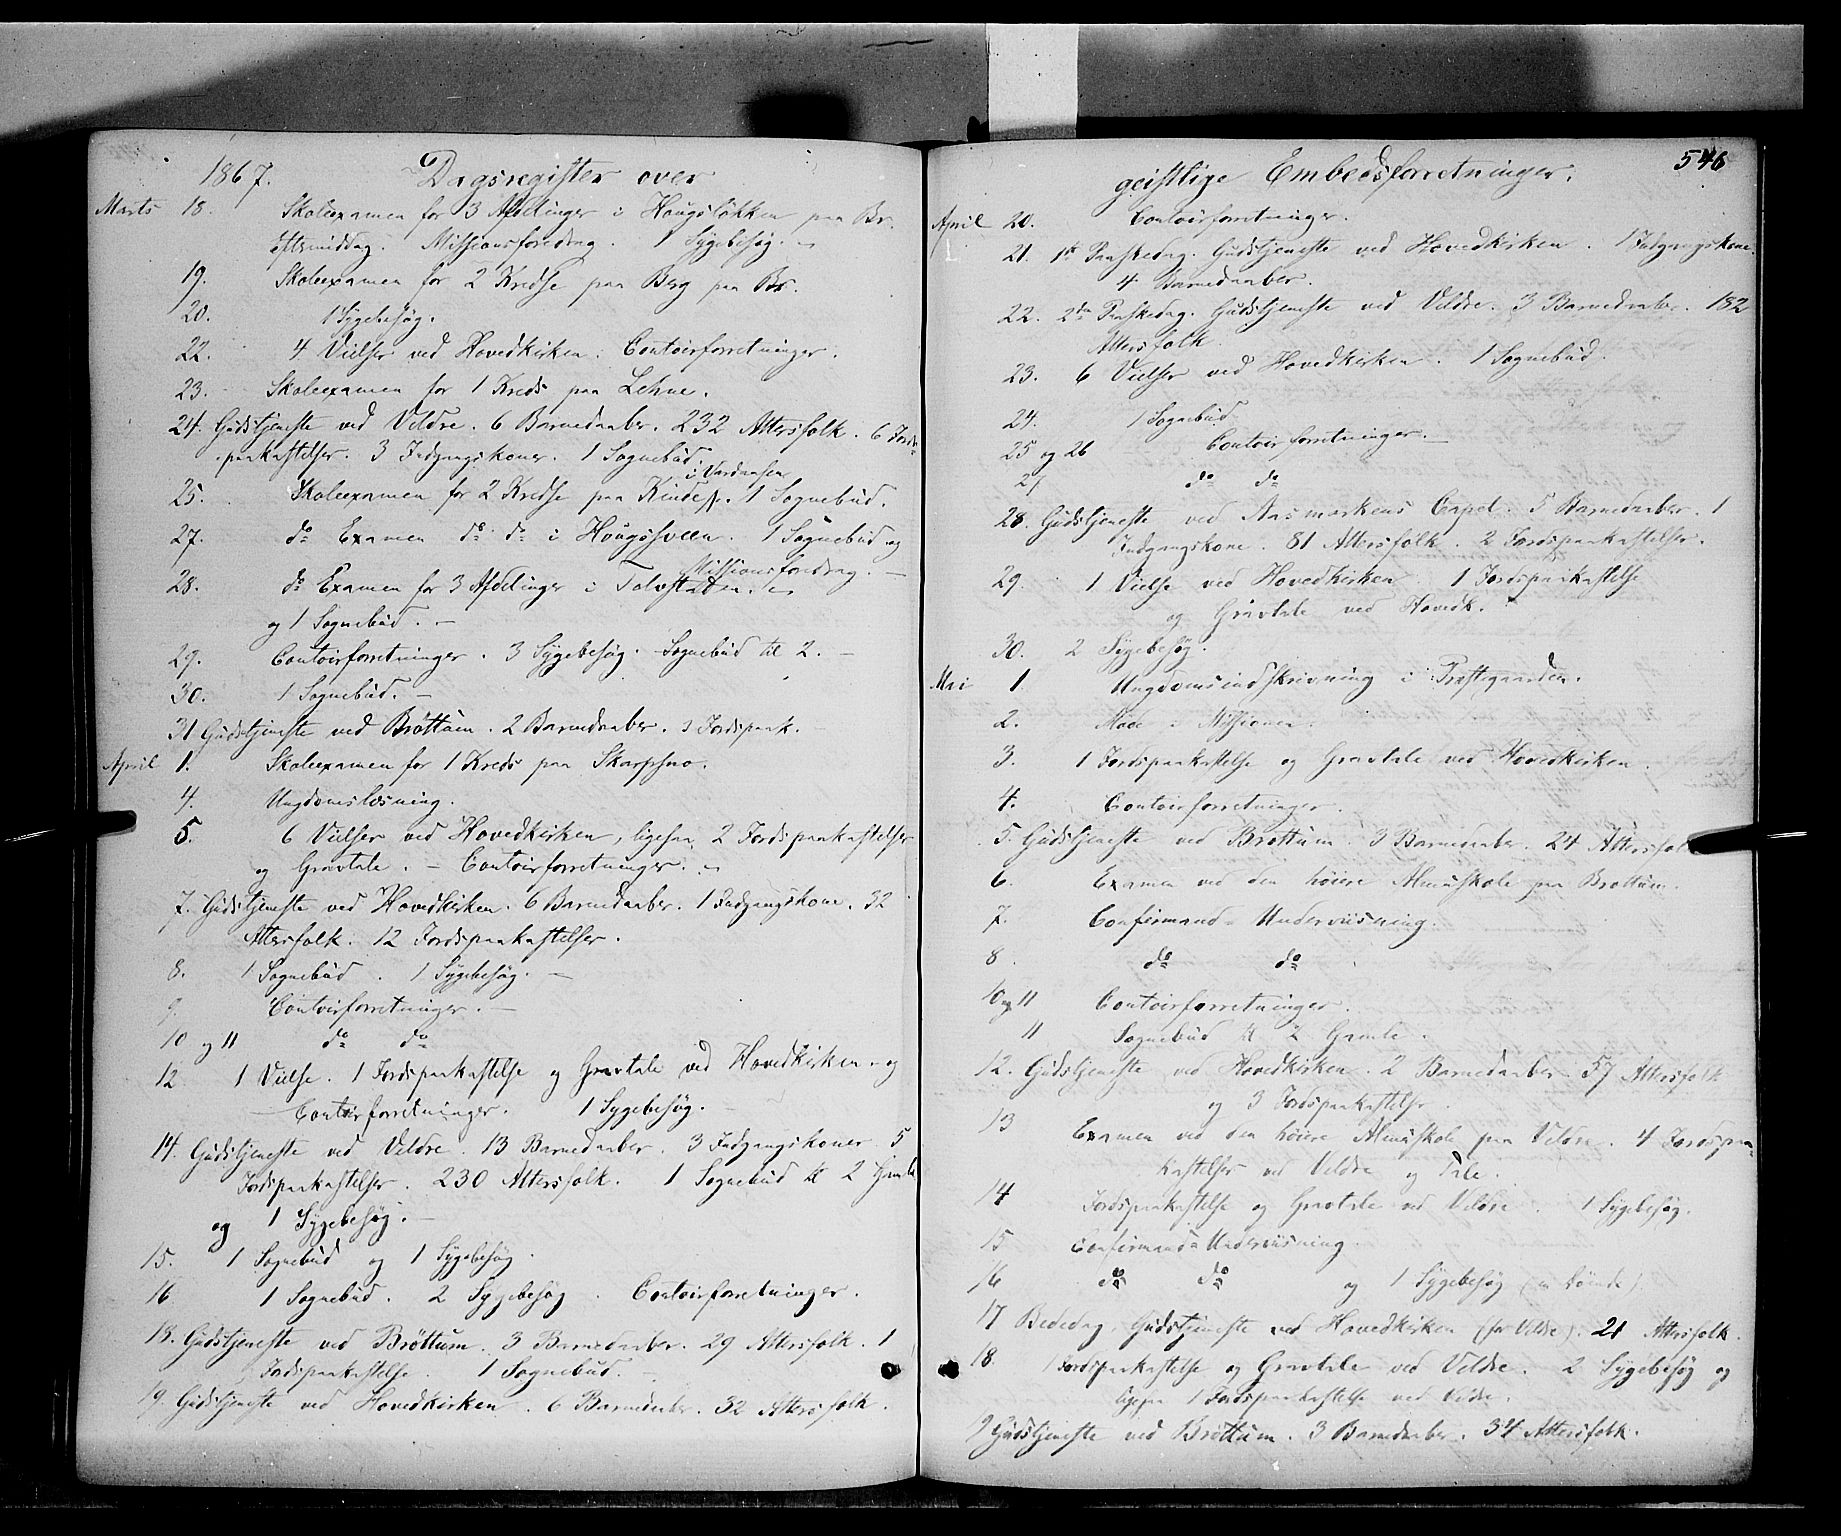 1867. Dagsregister over
Marts 18. Skoleexamen for 3 Afdelinger i Hougsløkken paa Br.
Eftermiddag. Missionsforedrag. 1 Sygebesøg.
19. Skoleexamen for 2 Kredse paa Berg paa Br.
20. 1 Sygebesøg.
22. 4 Vielser ved Hovedkirken. Contoirforretninger.
23. Skoleexamen for 1 Kreds paa Lehne.
24. Gudstjeneste ved Veldre. 6 Barnedaaber. 232 Altersfolk. 6 Jords-
paakastelser. 3 Indgangskoner. 1 Sognebud
25. Skoleexamen for 2 Kredse paa 1 Sognebud.
27. do Examen do do i Hougssveen. 1 Sognebud og
Missionsforedrag. —
28. do Examen for 3 Afdelinger i Tolvstaden.
og 1 Sognebud. —
29. Contoirforretninger. 3 Sygebesøg. Sognebud til 2. —
30. 1 Sognebud. —
31 Gudstjeneste ved Brøttum. 2 Barnedaaber. 3 Jordspaak.
April 1. Skoleexamen for 1 Kreds paa Skarpsno.
4. Ungdomslæsning.
5. 6 Vielser ved Hovedkirken, ligesaa 2 Jordspaakastelser
og Gravtale. — Contoirforretninger.
7. Gudstjeneste ved Hovedkirken. 6 Barnedaaber. 1 Indgangskone. 32
Altersfolk. 12 Jordspaakastelser.
8. 1 Sognebud. 1 Sygebesøg. —
9. Contoirforretninger. —
10 og 11 do do
12 1 Vielse. 1 Jordspaakastelse og Gravtale ved Hovedkirken og
Contoirforretninger. 1 Sygebesøg. —
14. Gudstjeneste ved Veldre. 13 Barnedaaber. 3 Indgangskoner 5
Jordspaakastelser. 230 Altersfolk. 1 Sognebud til 2 Gamle
og 1 Sygebesøg. —
15. 1 Sognebud og 1 Sygebesøg.
16 1 Sognebud. 2 Sygebesøg. Contoirforretninger.
18. Gudstjeneste ved Brøttum. 3 Barnedaaber. 29 Altersfolk. 1
Jordspaakastelse. 1 Sognebud. —
19. Gudstjeneste ved Hovedkirken. 6 Barnedaaber. 32 Altersfolk.
geistlige Embedsforretninger. 546
April 20. Contoirforretninger.
21. 1ste Paaskedag. Gudstjeneste ved Hovedkirken. 1 Indgangskone.
4 Barnedaaber.
22. 2den Paaskedag. Gudstjeneste ved Veldre. 3 Barnedaaber. 182
Altersfolk.
23. 6 Vielser ved Hovedkirken. 1 Sognebud.
24. 1 Sognebud
25 og 26 Contoirforretninger. —
27 do do
28. Gudstjeneste ved Aasmarkens Capel. 5 Barnedaaber. 1
Indgangskone. 81 Altersfolk. 2 Jordspaakastelser.
29. 1 Vielse ved Hovedkirken. 1 Jordspaakastelse
og Gravtale ved Hovedk.
30. 2 Sygebesøg.
Mai 1. Ungdomsindskrivning i Præstegaarden.
2. Missionen.
3. 1 Jordspaakastelse og Gravtale ved Hovedkirken.
4. Contoirforretninger.
5. Gudstjeneste ved Brøttum. 3 Barnedaaber. 24 Altersfolk
6. Examen ved den høiere Almuskole paa Brøttum.
7. Confirmand-Underviisning.
8. do do
10 og 11 Contoirforretninger.
11 Sognebud til 2 Gamle.
12. Gudstjeneste ved Hovedkirken. 2 Barnedaaber. 57 Altersfolk
og 3 Jordspaakastelser.
13 Examen ved den høiere Almuskole paa Veldre. 4 Jordspaa-
kastelser ved Veldre og Tale.
14 Jordspaakastelse og Gravtale ved Veldre. 1 Sygebesøg.
15 Confirmand-Underviisning.
16 do do og 1 Sygebesøg
17 Bededag. Gudstjeneste ved Hovedkirken (for Veldre). 21 Altersfolk.
18. 1 Jordspaakastelse og Gravtale ved Veldre. 2 Sygebesøg og
ligesaa 1 Jordspaakastelse ved Veldre.
9 Gudstjeneste ved Brøttum. 3 Barnedaaber. 34 Altersfolk.